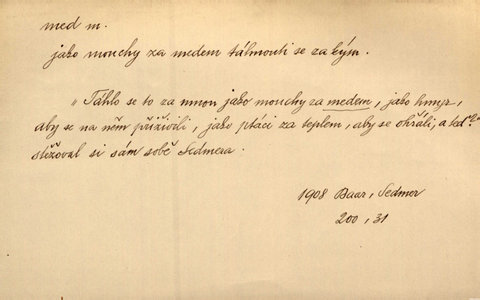 med m.
jako mouchy za medem táhnouti se za kým.
„Táhlo se to za mnou jako mouchy za medem, jako hmyz,
aby se na něm přiživili, jako ptáci za teplem, aby se ohřáli, a teď?“
stěžoval si sám sobě Sedmera.
1908 Baar, Sedmer
200, 31